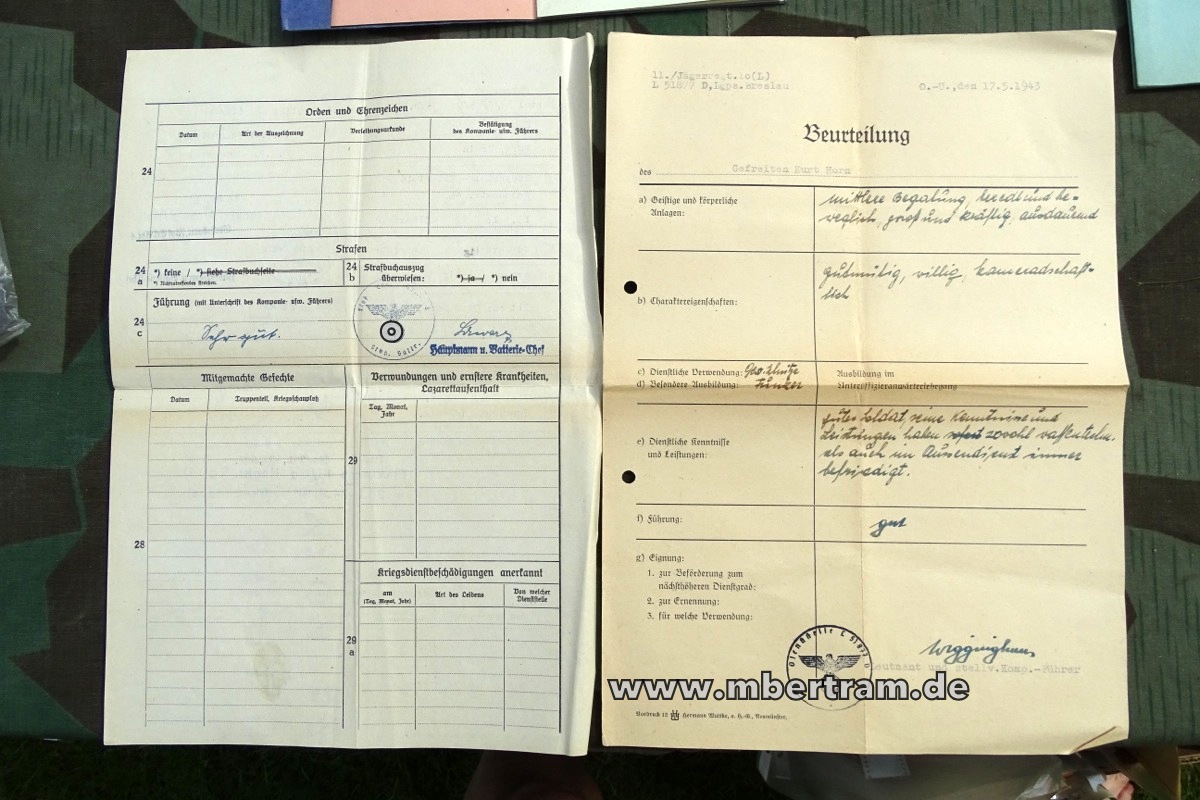 Orden und Ehrenzeichen
Datum
Art der Auszeichnung
Verleihungsurkunde
Bestätigung
des Kompanie- usw. Führers
24
Strafen
24
a
*) keine / *) siehe Strafbuchseite
24
b
Strafbuchauszug
überwiesen: *) ja / *) nein
Führung (mit Unterschrift des Kompanie- usw. Führers)
24
c
Sehr gut.
Hauptmann u. Batterie-Chef
Mitgemachte Gefechte
Datum
Truppenteil, Kriegsschauplatz
28
Verwundungen und ernstere Krankheiten,
Lazarettaufenthalt
Tag, Monat,
Jahr
29
Kriegsdienstbeschädigungen anerkannt
am
(Tag, Monat, Jahr)
Art des Leidens
Von welcher
Dienststelle
29
a
11./Jägerregt. (L)
L D, Lgpa. Breslau
O.-U., den 17.5.1943
Beurteilung
des Gefreiten Kurt Horn
a) Geistige und körperliche
Anlagen:
mittlere Begabung, beredt und be-
weglich, groß und kräftig, ausdauernd
b) Charaktereigenschaften:
gutmütig, willig, kameradschaft-
lich
c) Dienstliche Verwendung:
d) Besondere Ausbildung: Funker
Ausbildung im
Unteroffizieranwärterlehrgang
e) Dienstliche Kenntnisse
und Leistungen:
guter Soldat, seine Kenntnisse und
Leistungen haben sowohl waffentechn.
als auch im Aussendienst immer
befriedigt.
f) Führung:
gut
g) Eignung:
1. zur Beförderung zum
nächsthöheren Dienstgrad:
2. zur Ernennung:
3. für welche Verwendung:
Leutnant und stellv. Komp.-Führer
www.mbertram.de